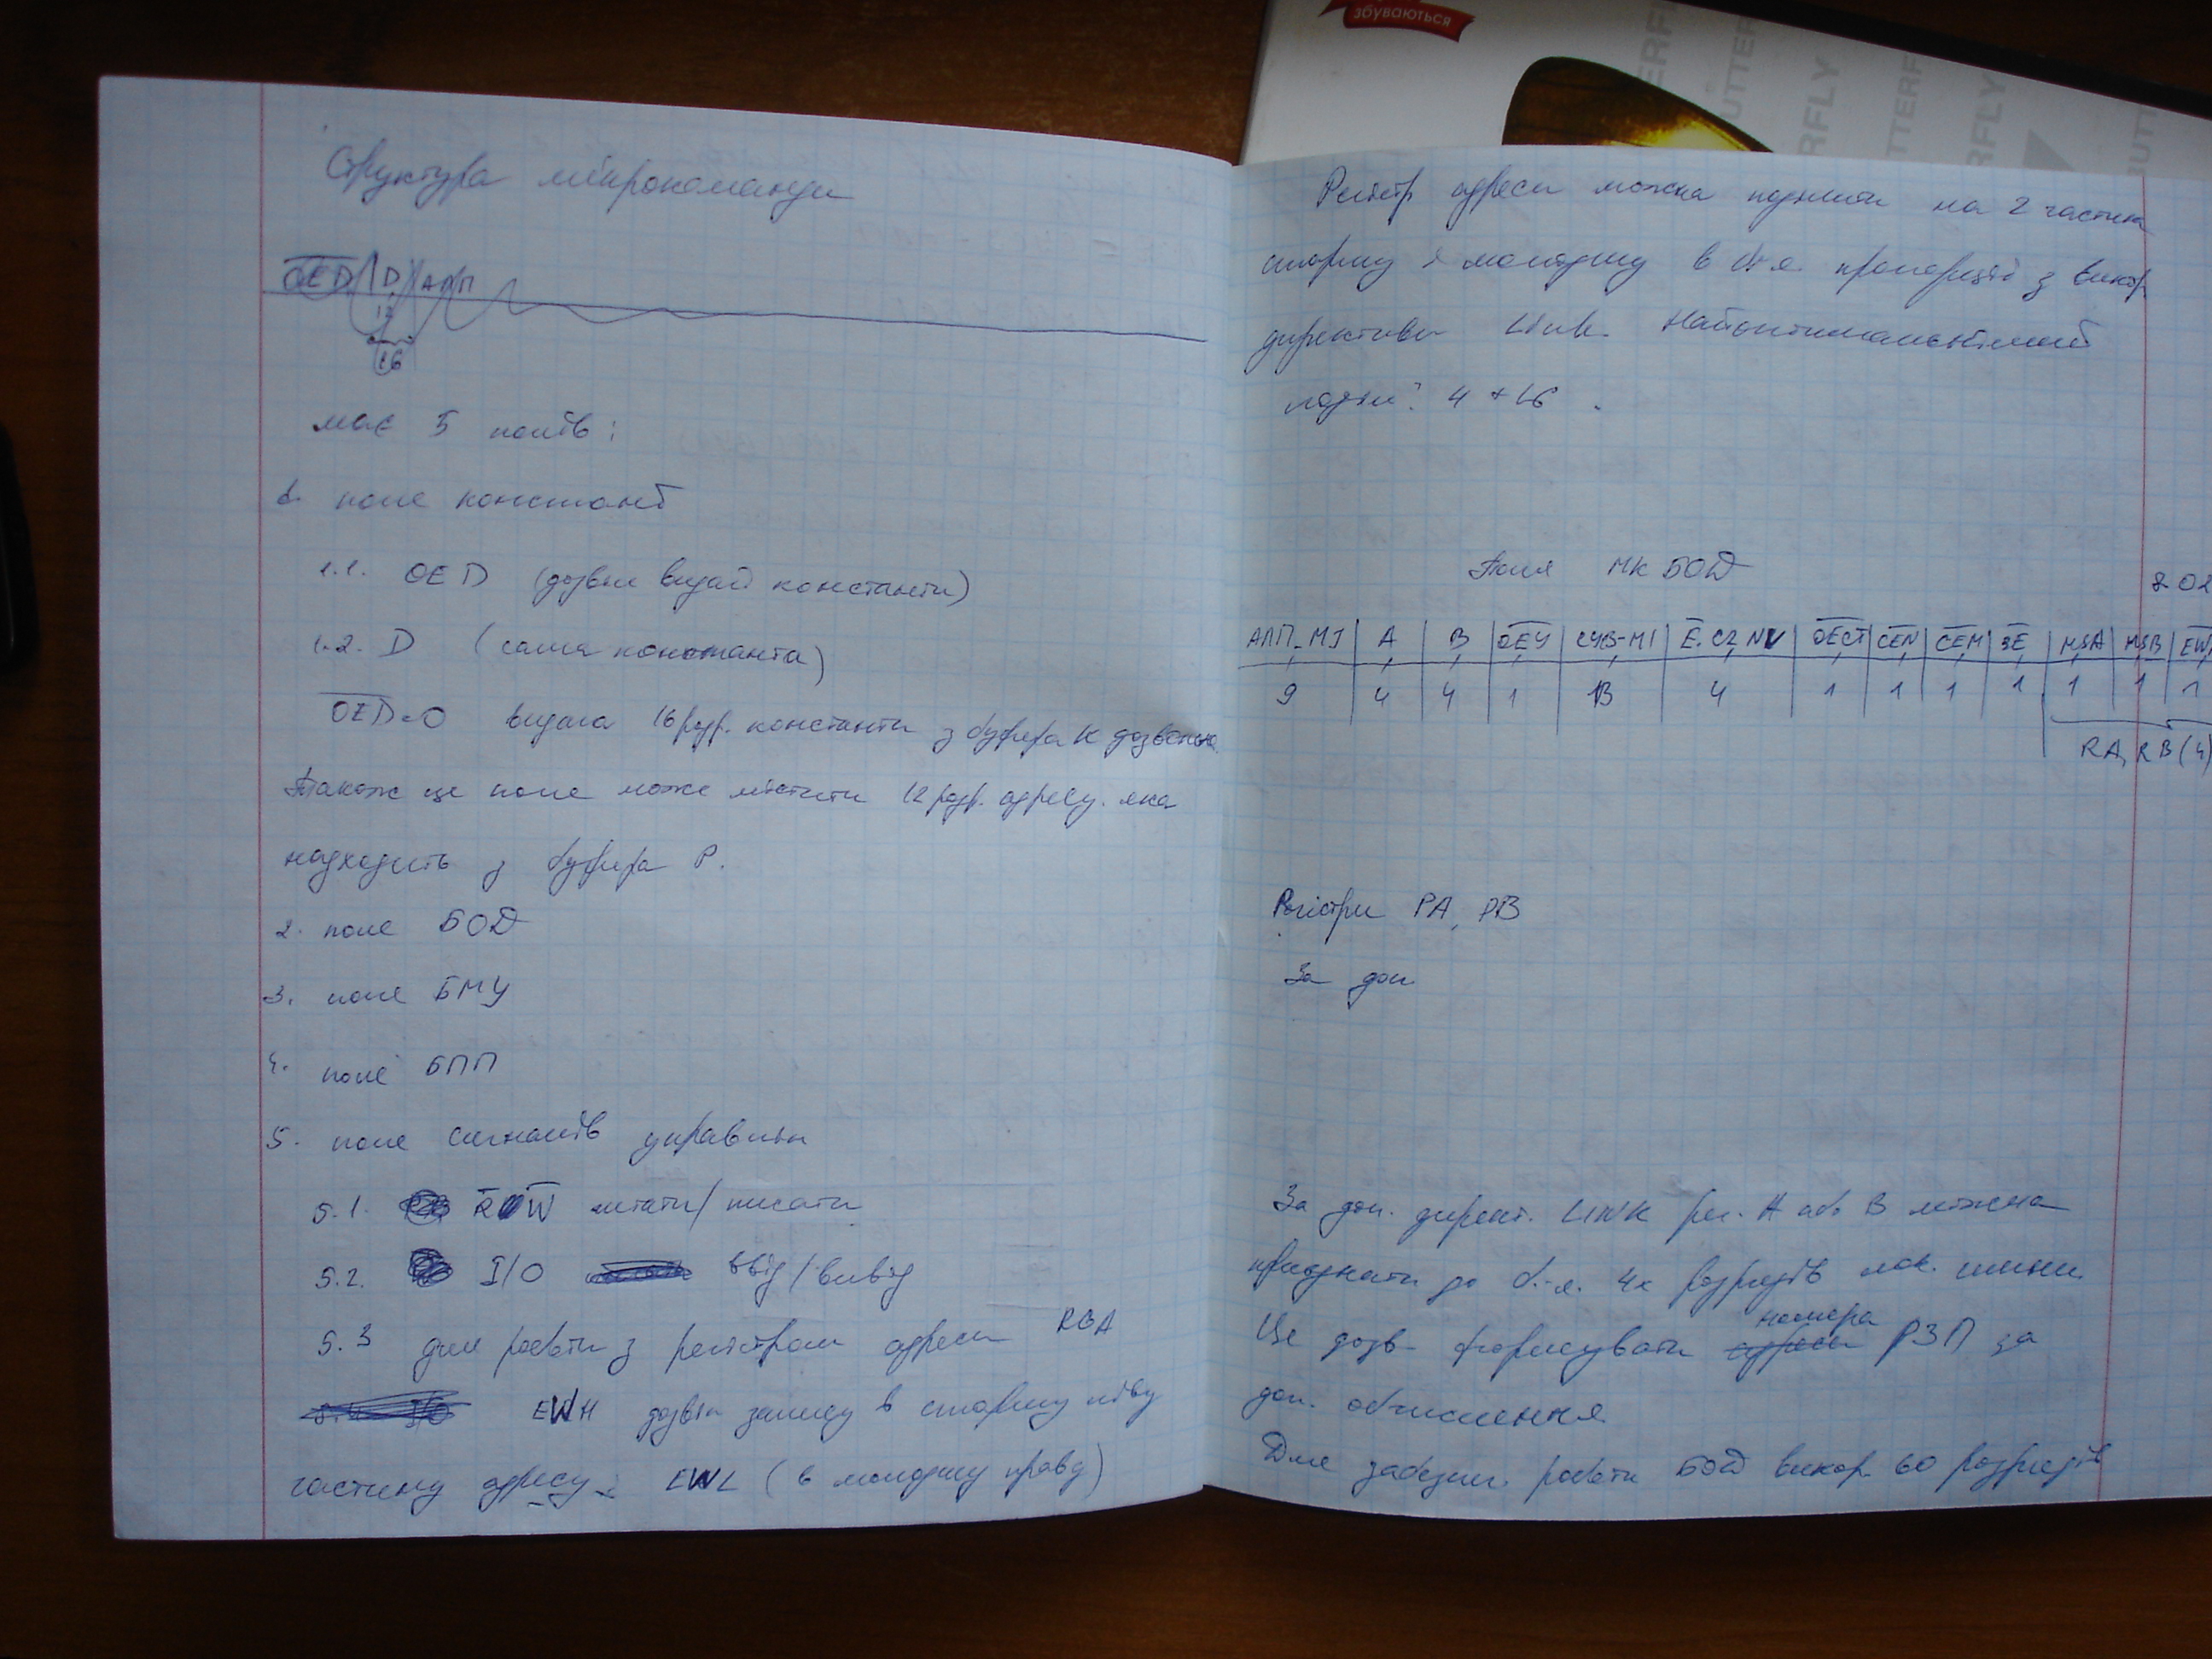 Структура мікрокоманди
OED D АЛП
12
16
має 5 полів:
1. поле констант
1.1. OED (дозвіл видачі константи)
1.2. D (сама константа)
OED=0 видача 16 розр. константи з буфера К дозволена.
Також це поле може містити 12 розр. адресу. яка
надходить з буфера Р.
2. поле БОД
3. поле БМУ
4. поле БПП
5. поле сигналів управління
5.1. R W читати/писати
5.2. I/O ввід/вивід
5.3 для роботи з регістром адреси RGA
EWH дозвіл запису в старшу ліву
частину адресу, EWL (в молодшу праву)
збуваються
BUTTERFLY
Регістр адреси можна поділити на 2 частини
старшу і молодшу в б-я пропорції з викор
директиви Link. Найоптимальніший
поділ: 4 + 16.
Поля МК БОД
АЛП_MI | A | B | OEY | СУВ-MI | E. CZ NV | OECT | CEN | CEM | SE | MSA | MSB | EW
9 | 4 | 4 | 1 | 13 | 4 | 1 | 1 | 1 | 1 | 1 | 1 | 1
RA, RB (4)
Регістри РА, РВ
За доп.
За доп. директ. LINK рег. А або В можна
приєднати до б-я. 4х розрядів лок. шини.
Це дозв. формувати адреси номера РЗП за
доп. обчислення.
Для забезпеч. роботи БОД викор. 60 розрядів